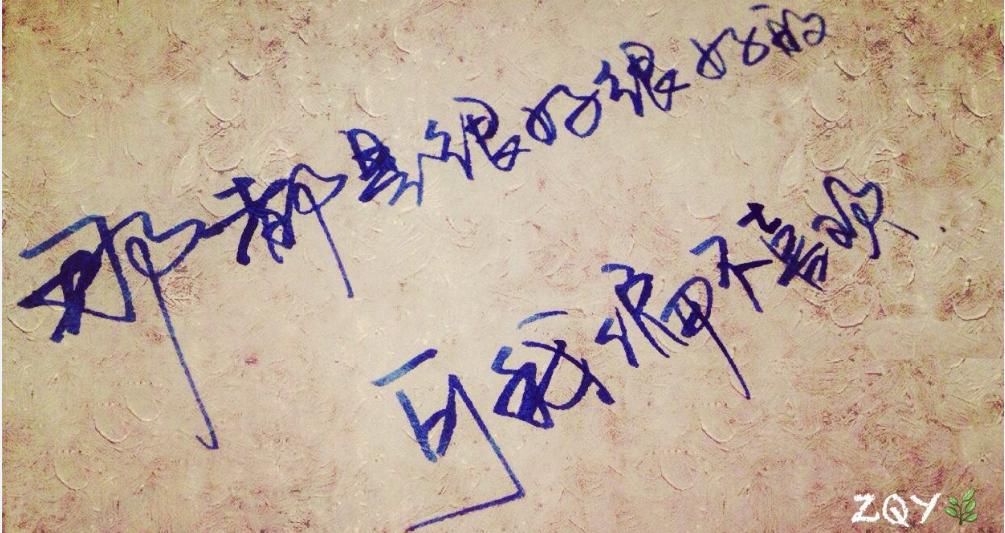 那都是很好很好的
可我偏偏不喜欢.
ZQY